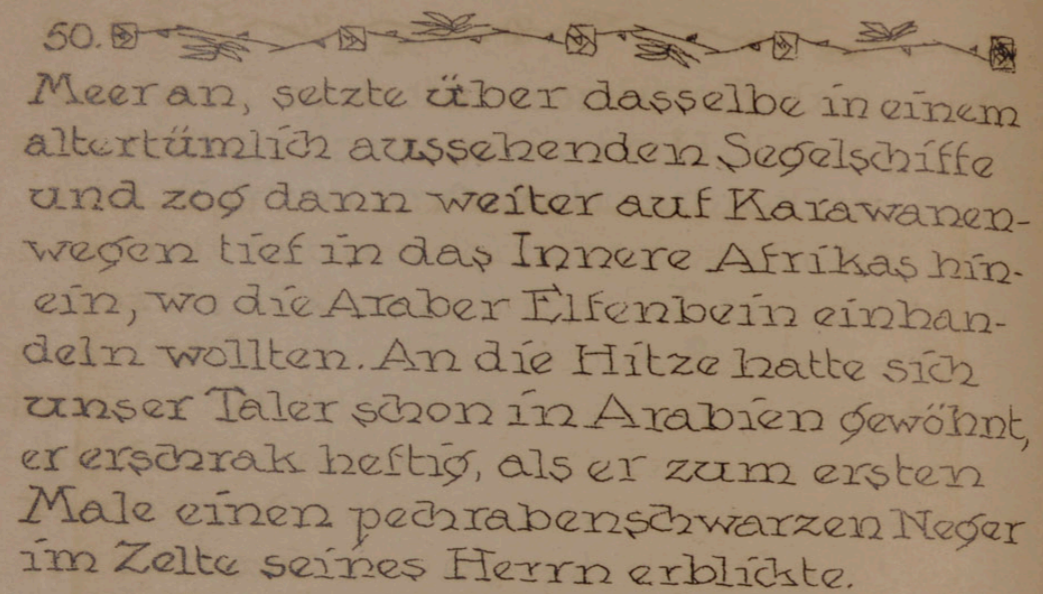 50.
Meer an, setzte über dasselbe in einem
altertümlich aussehenden Segelschiffe
und zog dann weiter auf Karawanen-
wegen tief in das Innere Afrikas hin-
ein, wo die Araber Elfenbein einhan-
deln wollten. An die Hitze hatte sich
unser Taler schon in Arabien gewöhnt,
er erschrak heftig, als er zum ersten
Male einen pechrabenschwarzen Neger
im Zelte seines Herrn erblickte.